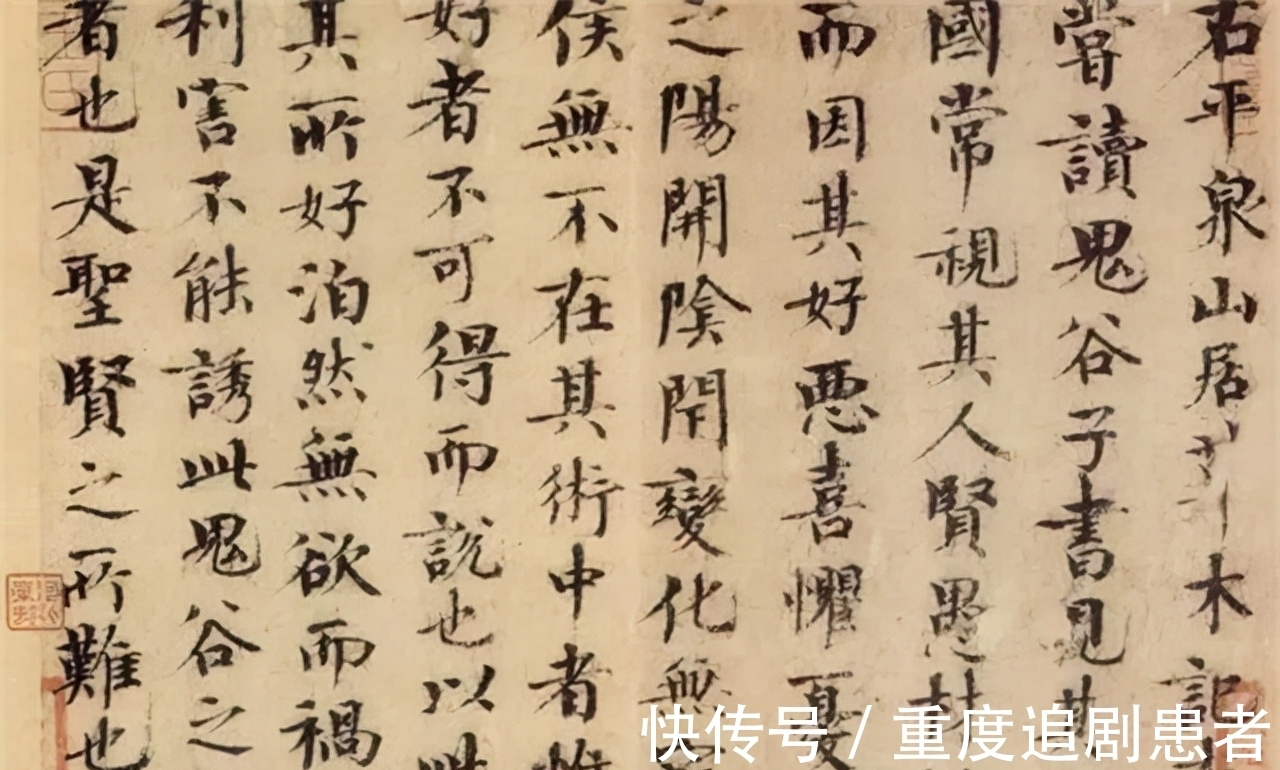 右平泉山居草木記
嘗讀鬼谷子書見其
國常視其人賢愚材
而因其好悪喜懼憂
之陽開陰閇變化無
侯無不在其術中者惟
好者不可得而說也以此
其所好泊然無欲而禍
利害不能誘此鬼谷之
者也是聖賢之所難也
快传号 / 重度追剧患者